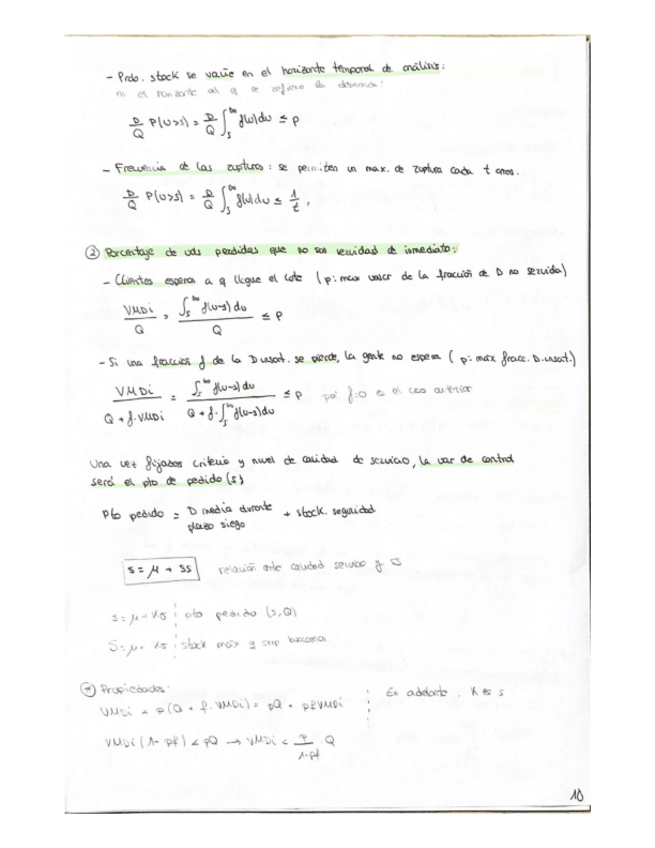 - Prob. stock se vacíe en el horizonte temporal de análisis:
en el horizonte al q se refiere la demanda:
D/Q P(U>s) = D/Q ∫_s^∞ f(u)du ≤ p
- Frecuencia de las rupturas: se permiten un max. de ruptura cada t anos.
D/Q P(U>s) = D/Q ∫_s^∞ f(u)du ≤ 1/t,
② Porcentaje de uds perdidas que no son servidas de inmediato:
- Clientes esperan a q llegue el lote (p: max valor de la fracción de D no servida)
VMDi/Q = ∫_s^∞ f(u-s)du / Q ≤ p
- Si una fracción f de la D insat. se pierde, la gente no espera (p: max fracc. D. insat.)
VMDi / (Q + f. VMDi) = ∫_s^∞ f(u-s)du / (Q + f. ∫_s^∞ f(u-s)du) ≤ p f=0 el caso anterior
Una vez fijados criterio y nivel de calidad de servicio, la var de control
será el pto de pedido (s)
Pto pedido = D media durante + stock. seguridad
plazo siego
s = μ + ss relación entre calidad servicio y
s = μ + Kσ pto pedido (s,Q)
S = μ + Kσ stock max q
Propiedades: En adelante. K es s
VMDi < p(Q + f. VMDi) = pQ + pfVMDi
VMDi (1- pf) < pQ → VMDi < p/(1-pf) Q
10